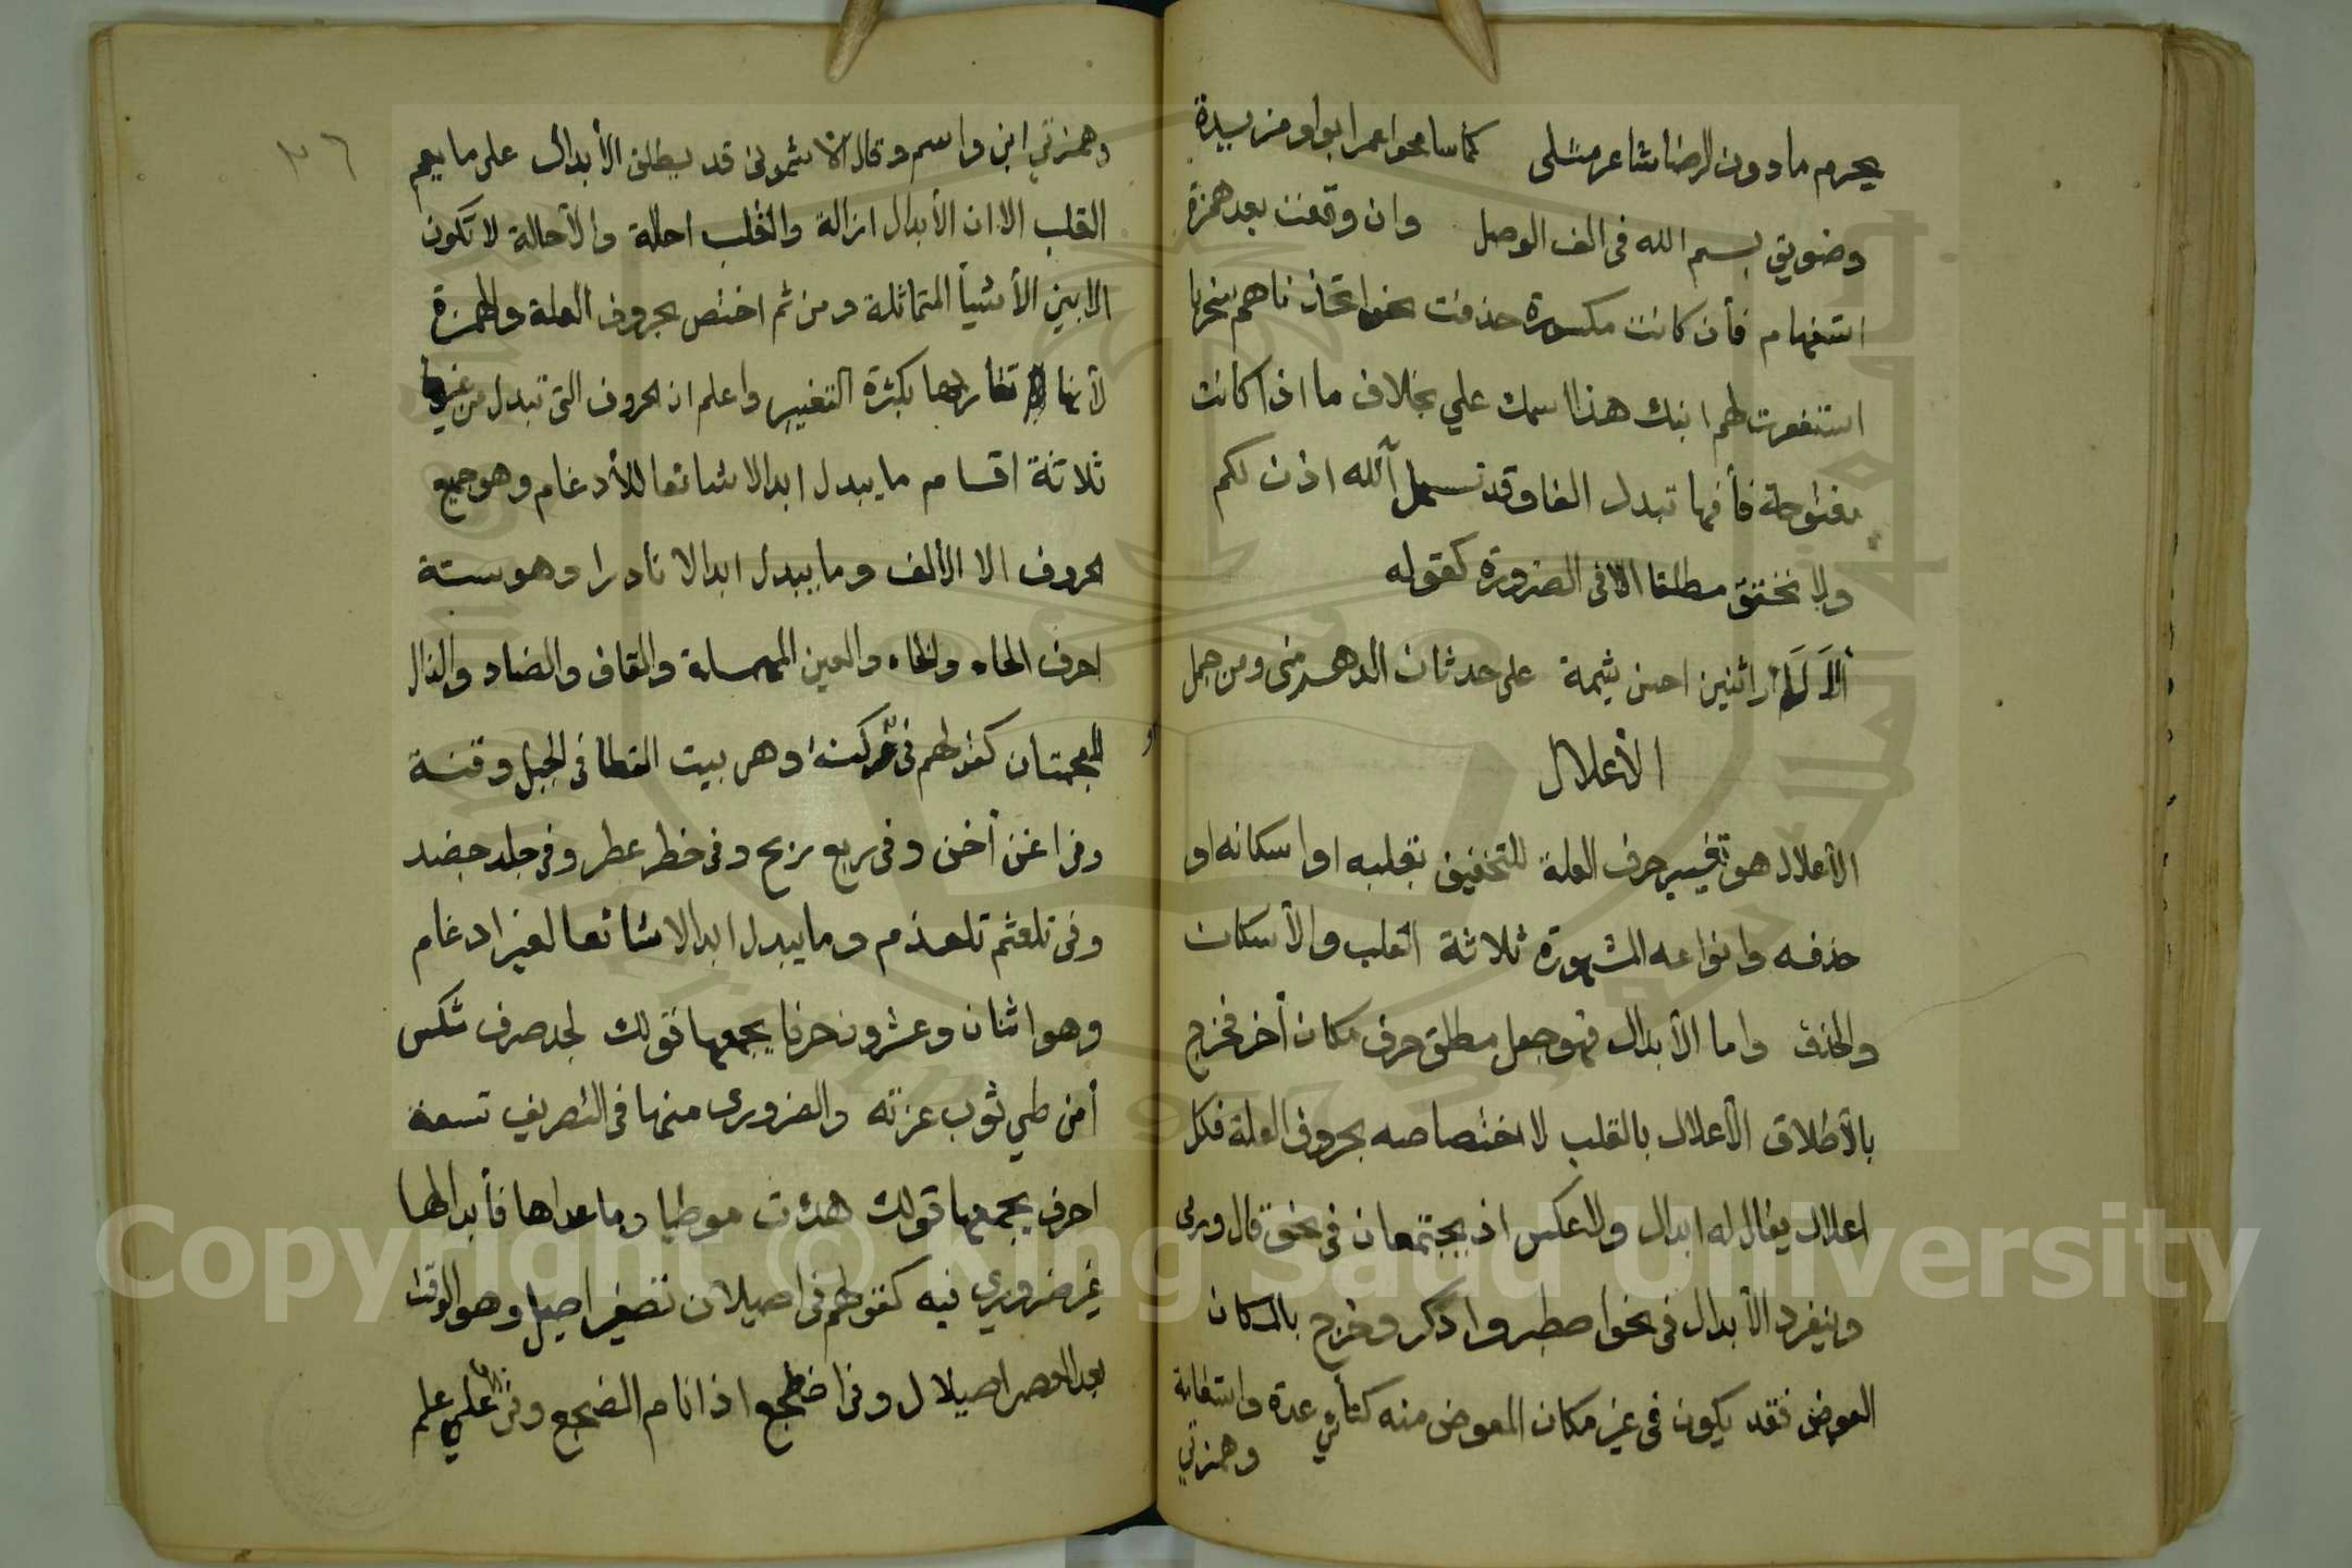 يحرم مادون الرضا شاعر مثلى كما سامحوا عمرا بواو مزيدة
وضويق بسم الله فى الف الوصل وان وقعت بعد همزة
استفهام فأن كانت مكسورة حذفت نحو اتخذناهم سخريا
استغفرت لهم ابنك هذا اسمك علي بخلاف ما اذا كانت
مفتوحة فأنها تبدل الفا وقد تسهل آلله اذن لكم
ولا تحقق مطلقا الا فى الضرورة كقوله
ألا لا أرى اثنين احسن شيمة على حدثان الدهر منى ومن جمل
الأعلال
الأعلال هو تغيير حرف العلة للتخفيف بقلبه او اسكانه او
حذفه وانواعه المشهورة ثلاثة القلب والأسكان
والحذف واما الأبدال فهو جعل مطلق حرف مكان أخر فخرج
بالأطلاق الأعلال بالقلب لاختصاصه بحروف العلة فكل
اعلال يقال له ابدال ولا عكس اذ يجتمعان فى نحو قال ورمى
وينفرد الأبدال فى نحو اصطبر واذكر وخرج بالمكان
العوض فقد يكون فى غير مكان المعوض منه كتأي عدة واستقامة
وهمزتي
٣٦
وهمزتي ابن واسم وقال الأشمونى قد يطلق الأبدال على ما يعم
القلب الا ان الأبدال ازالة والقلب احالة والأحالة لا تكون
الا بين الأشيأ المتماثلة ومن ثم اختص بحروف العلة والهمزة
لأنها تقاربها بكثرة التغيير واعلم ان الحروف التى تبدل من غيرها
ثلاثة اقسام ما يبدل ابدالا شائعا للأدغام وهو جميع
الحروف الا الألف وما يبدل ابدالا نادرا وهو ستة
احرف الحاء والخاء والعين المهملة والقاف والضاد والذال
المعجمتان كقولهم فى وكنة وهى بيت القطا فى الجبل وقنة
وفى اغن أخن وفى ربع ربح وفى خطر عطر وفى جلد جضد
وفى تلعثم تلعذم وما يبدل ابدالا شائعا لغير ادغام
وهو اثنان وعشرون حرفا يجمعها قولك لجد صرف شكس
أمن طي ثوب عزته والضرورى منها فى التصريف تسعة
احرف يجمعها قولك هدئت موطيا وما عداها فأبدالها
غير ضروري فيه كقولهم فى اصيلان تصغير اصيل وهو الوقت
بعد العصر اصيلال وفى اضطجع اذا نام الضجع وفى علي علج